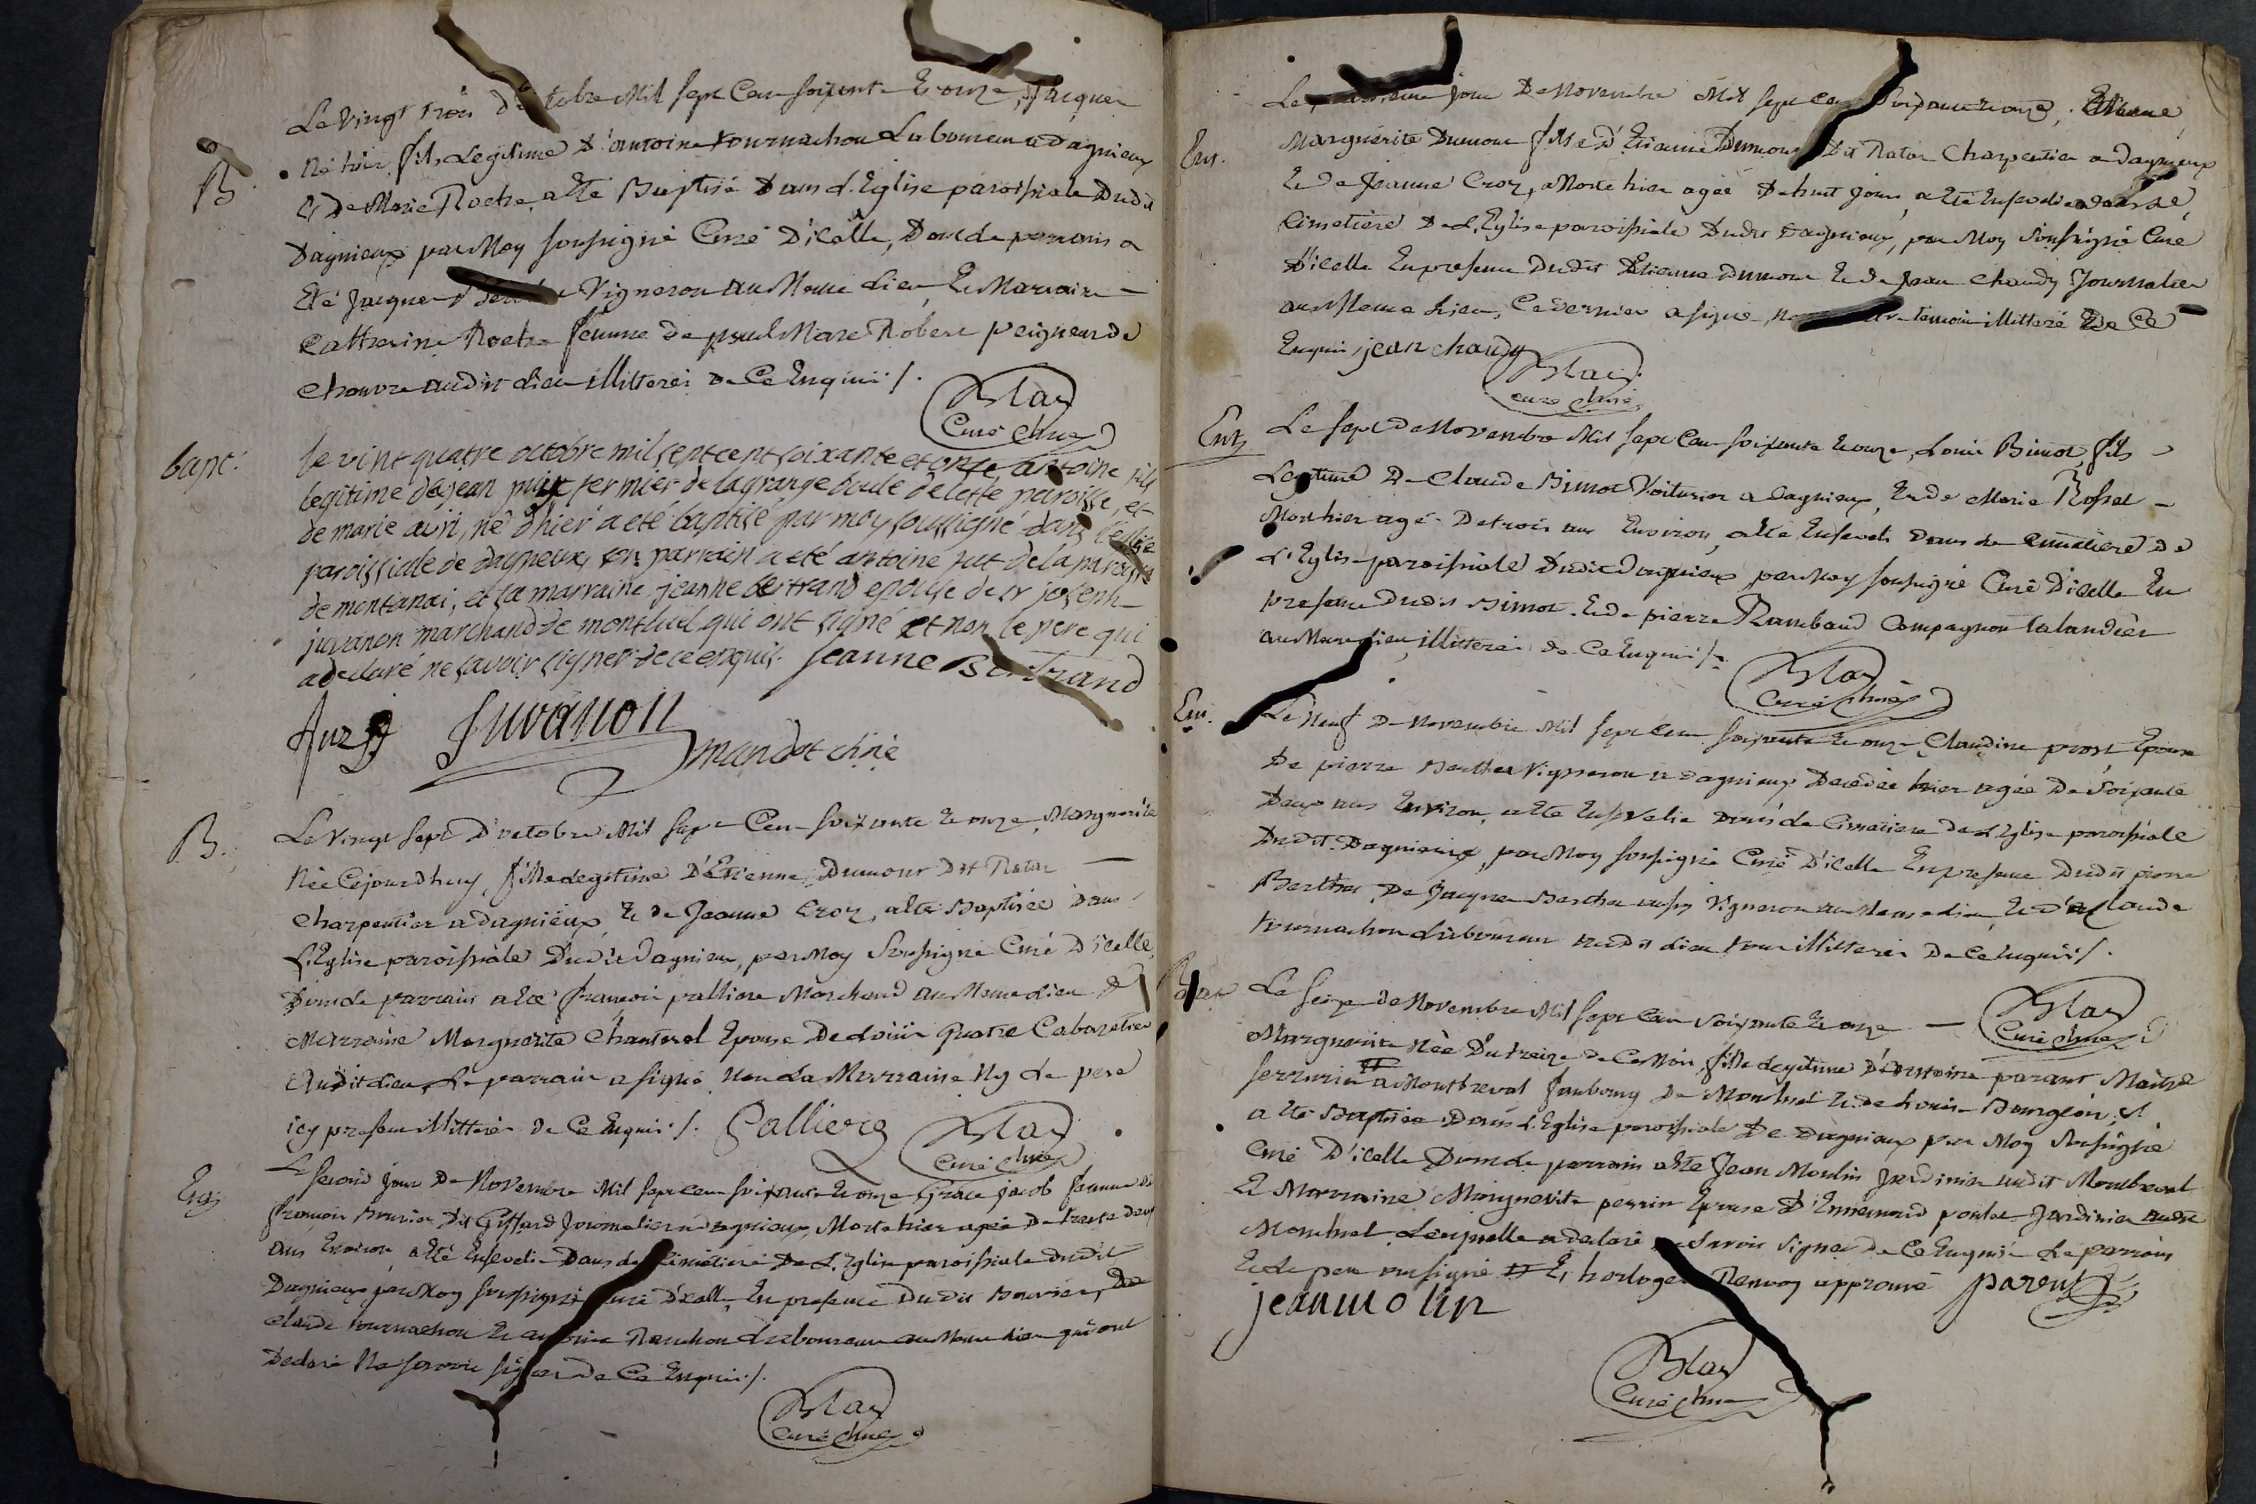 Le vingt trois d' tobre Mil sept Cent soixante & onze, Jacques
B. Né hier, fils Legitime d'antoine tournachon Laboureur a dagnieux
& De Marie Roche, a Eté Baptisé Dans L'Eglise paroissiale Dudit
Dagnieux par Moy soussigné Curé D'icelle, Dont le parrain a
Eté Jacques Vigneron au Meme Lieu, Et Marraine
Catherine Roche femme de paul Marc Robert peigneur de
Chanvre audit Lieu illitterés De Ce Enquis /.
Blas
Curé
bapt. le vint quatre octobre mil sept cent soixante et onze antoine fils
legitime de jean fermier de la grange de cette paroisse, et
de marie avri, né d'hier a eté baptisé par moy soussigné dans l'eglise
paroissiale de dagneux, son parrain a eté antoine jut de la paroisse
de montanai, et sa marraine jeanne bertrand epouse de sr joseph
juvanon marchand de montluel qui ont signé et non le pere qui
a declaré ne savoir signer de ce enquis. jeanne Bertrand
Juvanon
mandot
B. Le Vingt Sept D'octobre Mil Sept Cent Soixante & onze, Marguerite
Née Cejourdhuy, fille Legitime D'Etienne Dumont Dit Natar
Charpentier a dagnieux, & de Jeanne Croz, a Eté Baptisée Dans
L'Eglise paroissiale Dudit Dagnieux, par Moy Soussigné Curé D'icelle,
Dont le parrain a Eté françois palliere Marchand au Meme Lieu &
Marraine Marguerite Chanterel Epouse De Louis quatre Cabaretier
Audit Lieu, Le parrain a signé Non La Marraine Ny Le pere
icy present illitterés De Ce Enquis /. Palliere
Blas
Curé
Le second jour De Novembre Mil Sept Cent soixante & onze Grace jacob femme de
françois Bouvier Dit Giffard Journalier a dagnieux, Morte hier agée De trente deux
ans Environ, a Eté Ensevelie Dans le Cimetiere De L'Eglise paroissiale dudit
Dagnieux par Moy soussigné Curé D'icelle, En presence Dudit Bouvier, De
Claude tournachon & antoine Ranchon Laboureurs au Meme Lieu qui ont
Declaré Ne savoir signer De Ce Enquis /.
Blas
Curé
Le jour De Novembre Mil Sept Cent Soixante & onze,
Ent. Marguerite Dumont fille D'Etienne Dumont Dit Natar Charpentier a Dagnieux
& De Jeanne Croz, Morte hier agée De huit jours, a Eté Ensevelie dans le
Cimetiere De L'Eglise paroissiale Dudit Dagnieux, par Moy Soussigné Curé
D'icelle En presence Dudit Etienne Dumont & de Jean Chaudy Journalier
au Meme Lieu, Ce dernier a signé, temoin illitteré De Ce
Enquis, jean chaudy
Blas
curé
Ent. Le Sept De Novembre Mil sept Cent soixante & onze, Louis Bimot, fils
Legitime De Claude Bimot Voiturier a Dagnieux, & de Marie Rosset
Mort hier agé De trois ans Environ, a Eté Enseveli Dans le Cimetiere De
L'Eglise paroissiale Dudit Dagnieux, par Moy soussigné Curé D'icelle En
presence Dudit Bimot & de pierre Rambaud Compagnon talandier
au Meme Lieu, illitterés de Ce Enquis /.
Blas
Curé
Ent. Le Neuf De Novembre Mil Sept Cent soixante & onze, Claudine prost, Epouse
De pierre Berthet Vigneron a Dagnieux Decedée hier agée De Soixante
Deux ans Environ, a Eté Ensevelie Dans le Cimetiere de L'Eglise paroissiale
Dudit Dagnieux, par Moy soussigné Curé D'icelle En presence Dudit pierre
Berthet, De Jacques Berthet aussy Vigneron au Meme Lieu, & de Claude
tournachon Laboureur audit Lieu tous illitterés De Ce Enquis /.
Blas
Curé
Le Seize de Novembre Mil Sept Cent Soixante & onze
Marguerite Née Du treize de Ce Mois, fille Legitime D'antoine parant Maitre
serrurier a Montbreval faubourg De Montluel & de Louise Bourgeon,
a Eté Baptisée Dans L'Eglise paroissiale De Dagnieux par Moy Soussigné
Curé D'icelle Dont le parrain a Eté Jean Moulin Jardinier audit Montbreval
& Marraine Marguerite perrin Epouse D'Ennemond poulet Jardinier audit
Montluel, Lesquelle a declaré Savoir Signer De Ce Enquise Le parrain
& Le pere ont signé & horloger Renvoy approuvé parent
jean molin
Blas
Curé